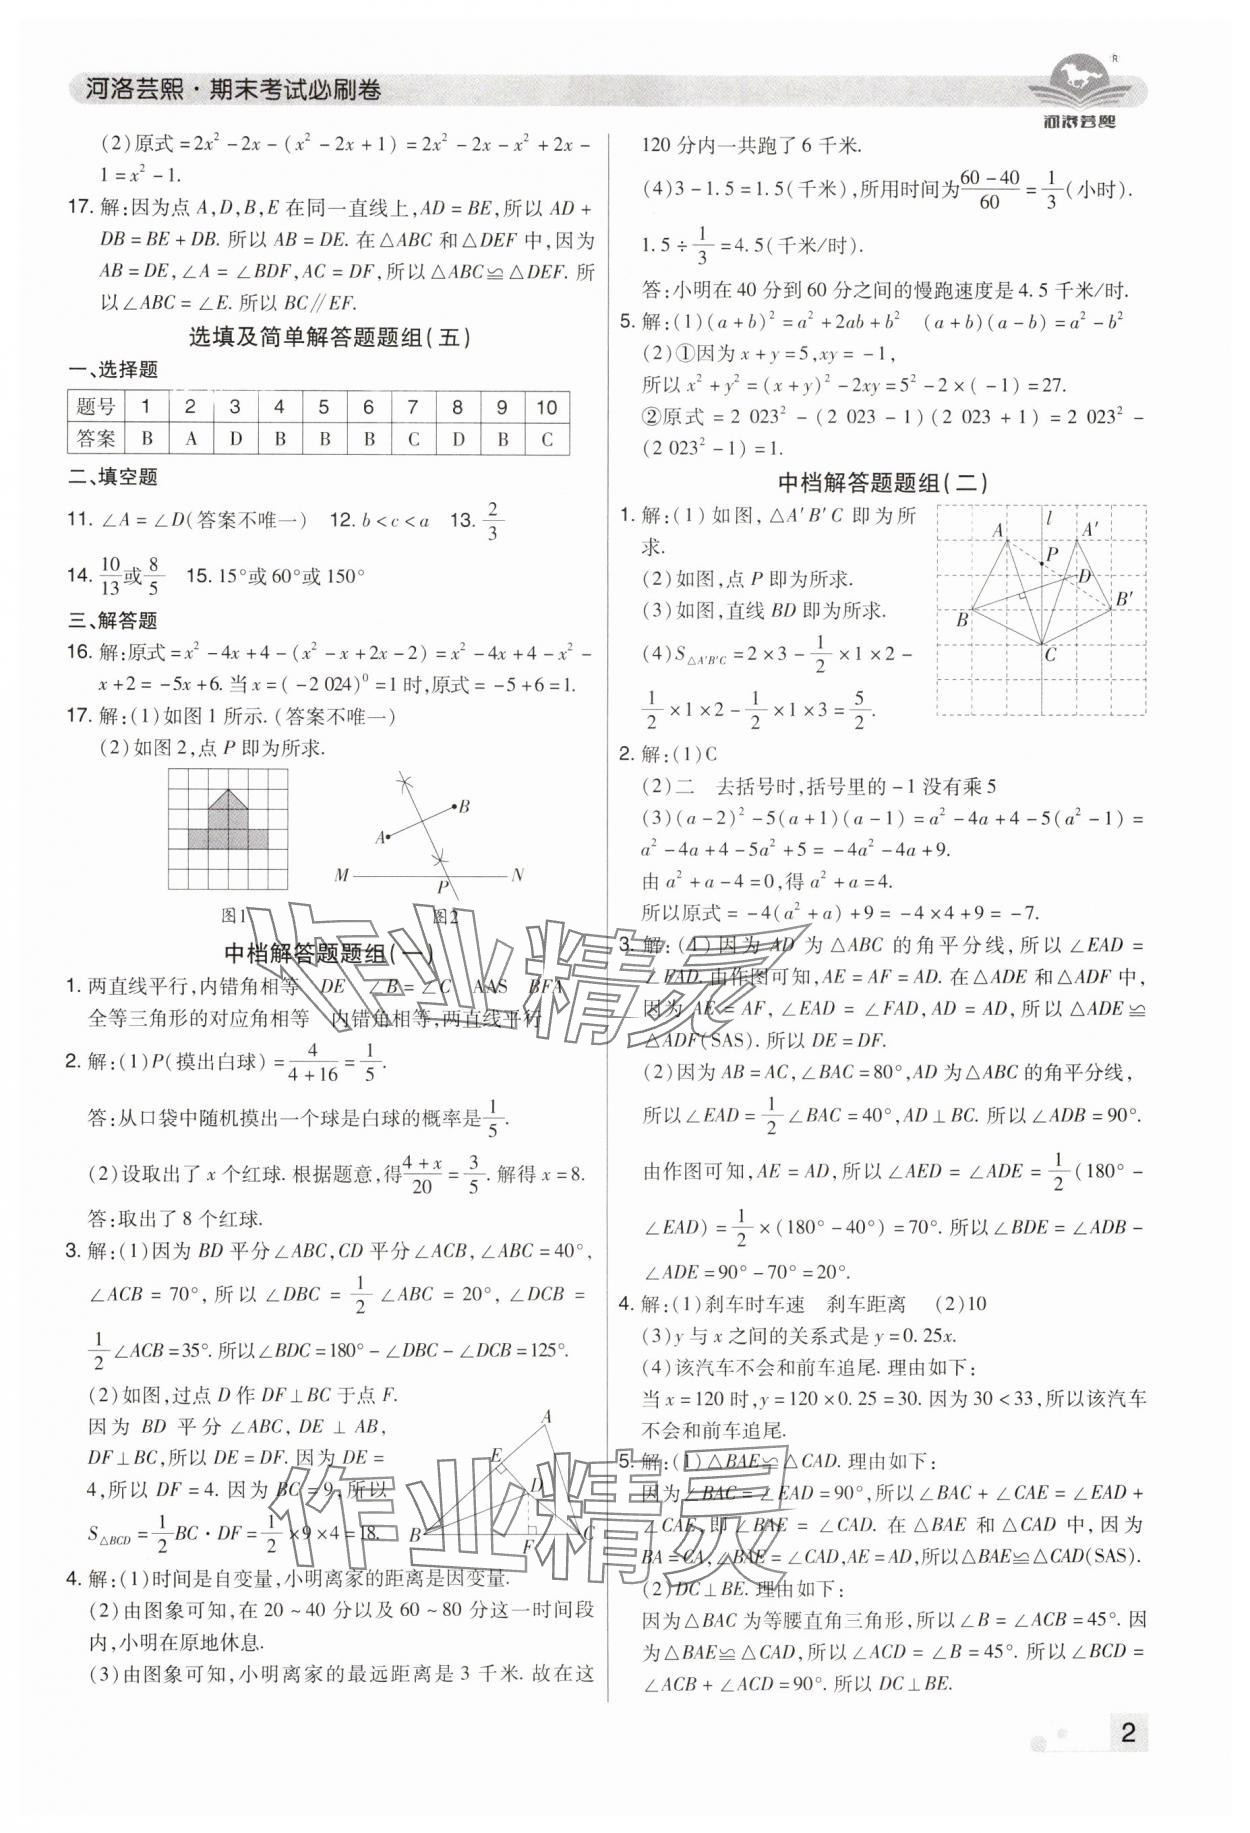 河洛芸熙·期末考试必刷卷
R
河洛芸熙
(2)原式=2x²-2x-(x²-2x+1)=2x²-2x-x²+2x-
1=x²-1.
17. 解:因为点A,D,B,E在同一直线上,AD=BE,所以AD+
DB=BE+DB.所以AB=DE.在△ABC和△DEF中,因为
AB=DE,∠A=∠BDF,AC=DF,所以△ABC≌△DEF.所
以∠ABC=∠E.所以BC∥EF.
选填及简单解答题题组(五)
一、选择题
题号 1 2 3 4 5 6 7 8 9 10
答案 B A D B B B C D B C
二、填空题
11. ∠A=∠D(答案不唯一) 12. b<c<a 13. 2/3
14. 10/13或8/5 15. 15°或60°或150°
三、解答题
16. 解:原式=x²-4x+4-(x²-x+2x-2)=x²-4x+4-x²-
x+2=-5x+6.当x=(-2 024)⁰=1时,原式=-5+6=1.
17. 解:(1)如图1所示.(答案不唯一)
(2)如图2,点P即为所求.
A B M P N
图1 图2
中档解答题题组(一)
1. 两直线平行,内错角相等 DE ∠B=∠C AAS BFA
全等三角形的对应角相等 内错角相等,两直线平行
2. 解:(1)P(摸出白球)=4/(4+16)=1/5.
答:从口袋中随机摸出一个球是白球的概率是1/5.
(2)设取出了x个红球.根据题意,得(4+x)/20=3/5.解得x=8.
答:取出了8个红球.
3. 解:(1)因为BD平分∠ABC,CD平分∠ACB,∠ABC=40°,
∠ACB=70°,所以∠DBC=1/2∠ABC=20°,∠DCB=
1/2∠ACB=35°.所以∠BDC=180°-∠DBC-∠DCB=125°.
(2)如图,过点D作DF⊥BC于点F.
因为BD平分∠ABC,DE⊥AB,
DF⊥BC,所以DE=DF.因为DE=
4,所以DF=4.因为BC=9,所以
S△BCD=1/2BC·DF=1/2×9×4=18.
A E D B F C
4. 解:(1)时间是自变量,小明离家的距离是因变量.
(2)由图象可知,在20~40分以及60~80分这一时间段
内,小明在原地休息.
(3)由图象可知,小明离家的最远距离是3千米.故在这
120分内一共跑了6千米.
(4)3-1.5=1.5(千米),所用时间为(60-40)/60=1/3(小时).
1.5÷1/3=4.5(千米/时).
答:小明在40分到60分之间的慢跑速度是4.5千米/时.
5. 解:(1)(a+b)²=a²+2ab+b² (a+b)(a-b)=a²-b²
(2)①因为x+y=5,xy=-1,
所以x²+y²=(x+y)²-2xy=5²-2×(-1)=27.
②原式=2 023²-(2 023-1)(2 023+1)=2 023²-
(2 023²-1)=1.
中档解答题题组(二)
1. 解:(1)如图,△A′B′C即为所
求.
(2)如图,点P即为所求.
(3)如图,直线BD即为所求.
(4)S△A′B′C=2×3-1/2×1×2-
1/2×1×2-1/2×1×3=5/2.
A l A′ P D B B′ C
2. 解:(1)C
(2)二 去括号时,括号里的-1没有乘5
(3)(a-2)²-5(a+1)(a-1)=a²-4a+4-5(a²-1)=
a²-4a+4-5a²+5=-4a²-4a+9.
由a²+a-4=0,得a²+a=4.
所以原式=-4(a²+a)+9=-4×4+9=-7.
3. 解:(1)因为AD为△ABC的角平分线,所以∠EAD=
∠FAD.由作图可知,AE=AF=AD.在△ADE和△ADF中,
因为AE=AF,∠EAD=∠FAD,AD=AD,所以△ADE≌
△ADF(SAS).所以DE=DF.
(2)因为AB=AC,∠BAC=80°,AD为△ABC的角平分线,
所以∠EAD=1/2∠BAC=40°,AD⊥BC.所以∠ADB=90°.
由作图可知,AE=AD,所以∠AED=∠ADE=1/2(180°-
∠EAD)=1/2×(180°-40°)=70°.所以∠BDE=∠ADB-
∠ADE=90°-70°=20°.
4. 解:(1)刹车时车速 刹车距离 (2)10
(3)y与x之间的关系式是y=0.25x.
(4)该汽车不会和前车追尾.理由如下:
当x=120时,y=120×0.25=30.因为30<33,所以该汽车
不会和前车追尾.
5. 解:(1)△BAE≌△CAD.理由如下:
因为∠BAC=∠EAD=90°,所以∠BAC+∠CAE=∠EAD+
∠CAE,即∠BAE=∠CAD.在△BAE和△CAD中,因为
BA=CA,∠BAE=∠CAD,AE=AD,所以△BAE≌△CAD(SAS).
(2)DC⊥BE.理由如下:
因为△BAC为等腰直角三角形,所以∠B=∠ACB=45°.因
为△BAE≌△CAD,所以∠ACD=∠B=45°.所以∠BCD=
∠ACB+∠ACD=90°.所以DC⊥BE.
作业精灵
作业精灵
2